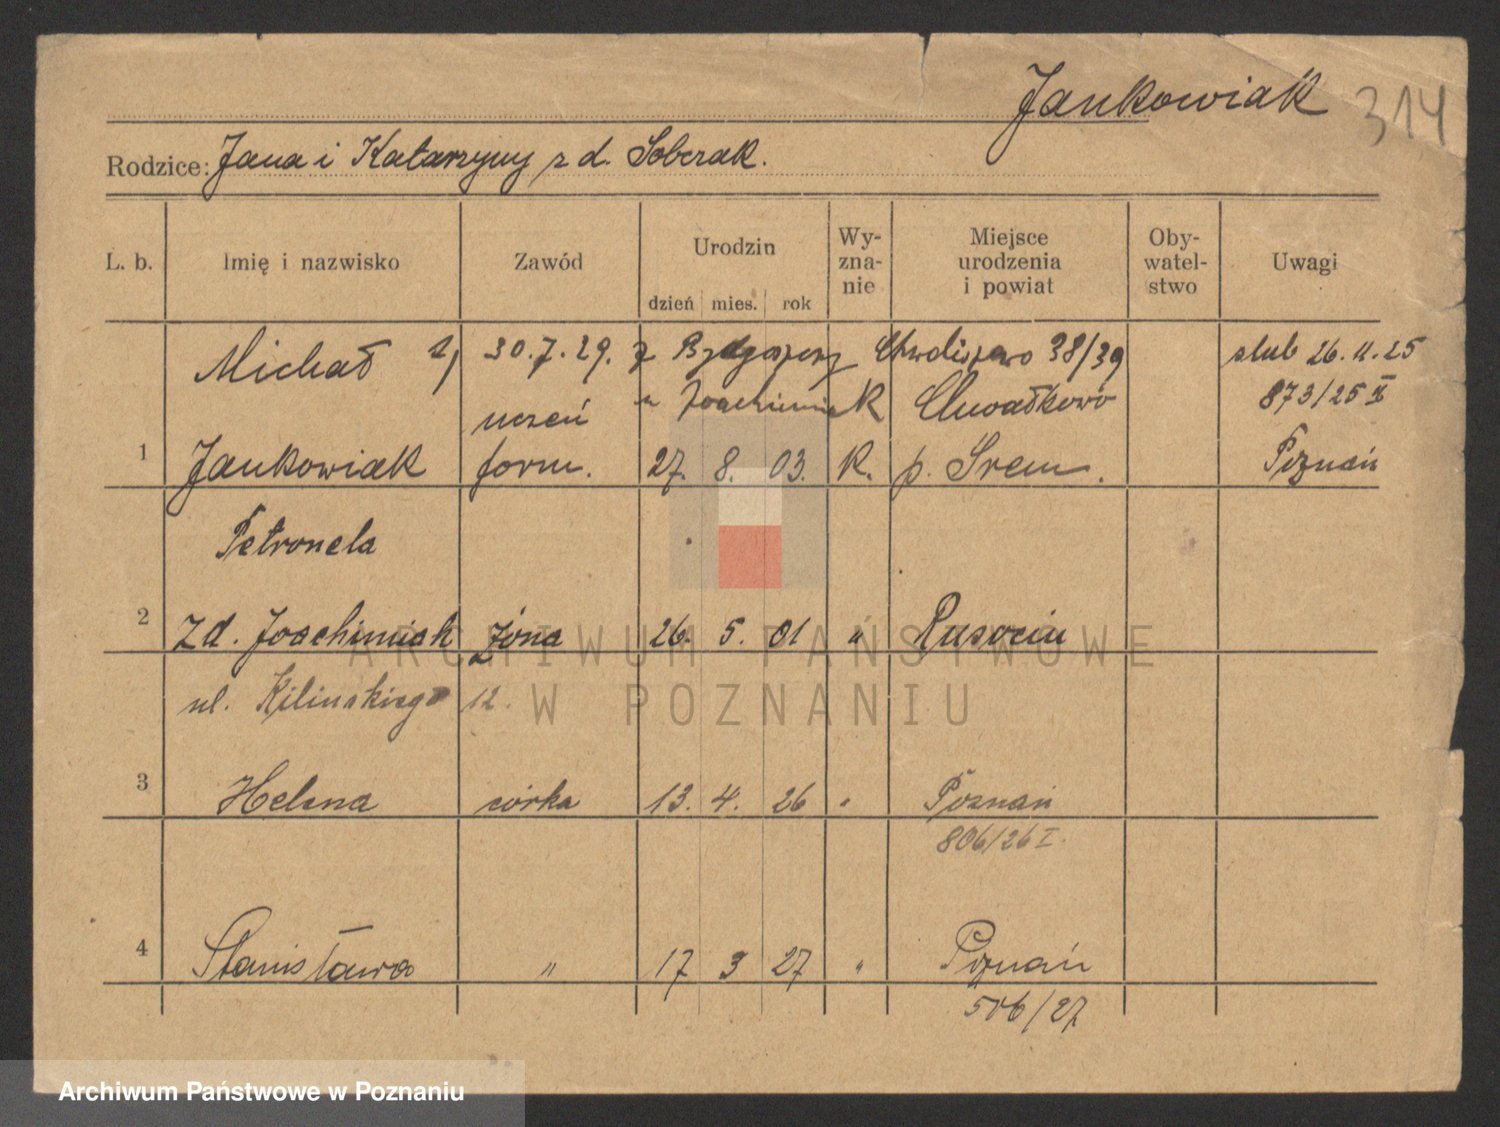 Jankowiak 314
Rodzice: Jana i Katarzyny z d. Sobczak.
L. b. Imię i nazwisko Zawód Urodzin dzień mies. rok Wy-zna-nie Miejsce urodzenia i powiat Oby-watel-stwo Uwagi
Michał 30.7.29. z Bydgoszczy 38/39 ślub 26.11.25
uczeń Joachimiak Chwałkowo 873/25 II
1 Jankowiak form. 27. 8. 03. K. p. Śrem. Poznań
Petronela
2 z d. Joachimiak żona 26. 5. 01 " Rusocin
ul. Kilińskiego 12.
3 Helena córka 13. 4. 26 " Poznań
806/26 I.
4 Stanisława " 17 3 27 " Poznań
506/27
ARCHIWUM PAŃSTWOWE
W POZNANIU
Archiwum Państwowe w Poznaniu